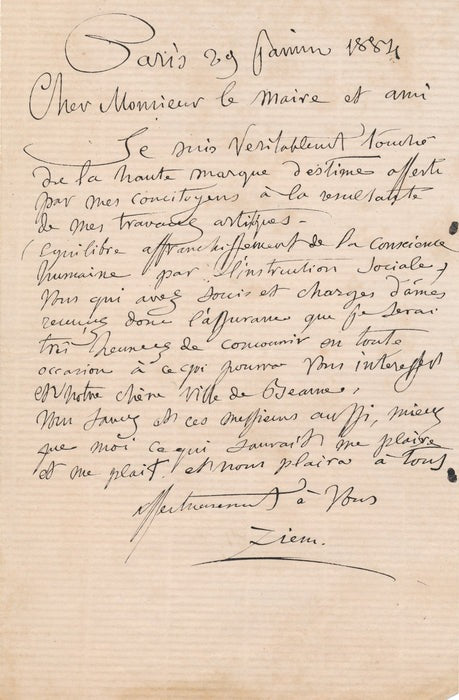 Paris 29 Janvier 1884
Cher Monsieur le Maire et ami
Je suis Veritablement touché
de la haute marque d'estime offerte
par mes concitoyens à la resultante
de mes travaux artistiques -
(Equilibre affranchissement de la Conscience
humaine par l'instruction Sociale,)
Vous qui avez soucis et charges d'âmes
recevez donc l'assurance que je serai
très heureux de concourir en toute
occasion à ce qui pourra Vous interesser
et notre chère Ville de Beaune,
Vous savez et ces messieurs aussi, mieux
que moi ce qui saurait me plaire
et me plait et nous plaira à tous
affectueusement à Vous
Ziem.